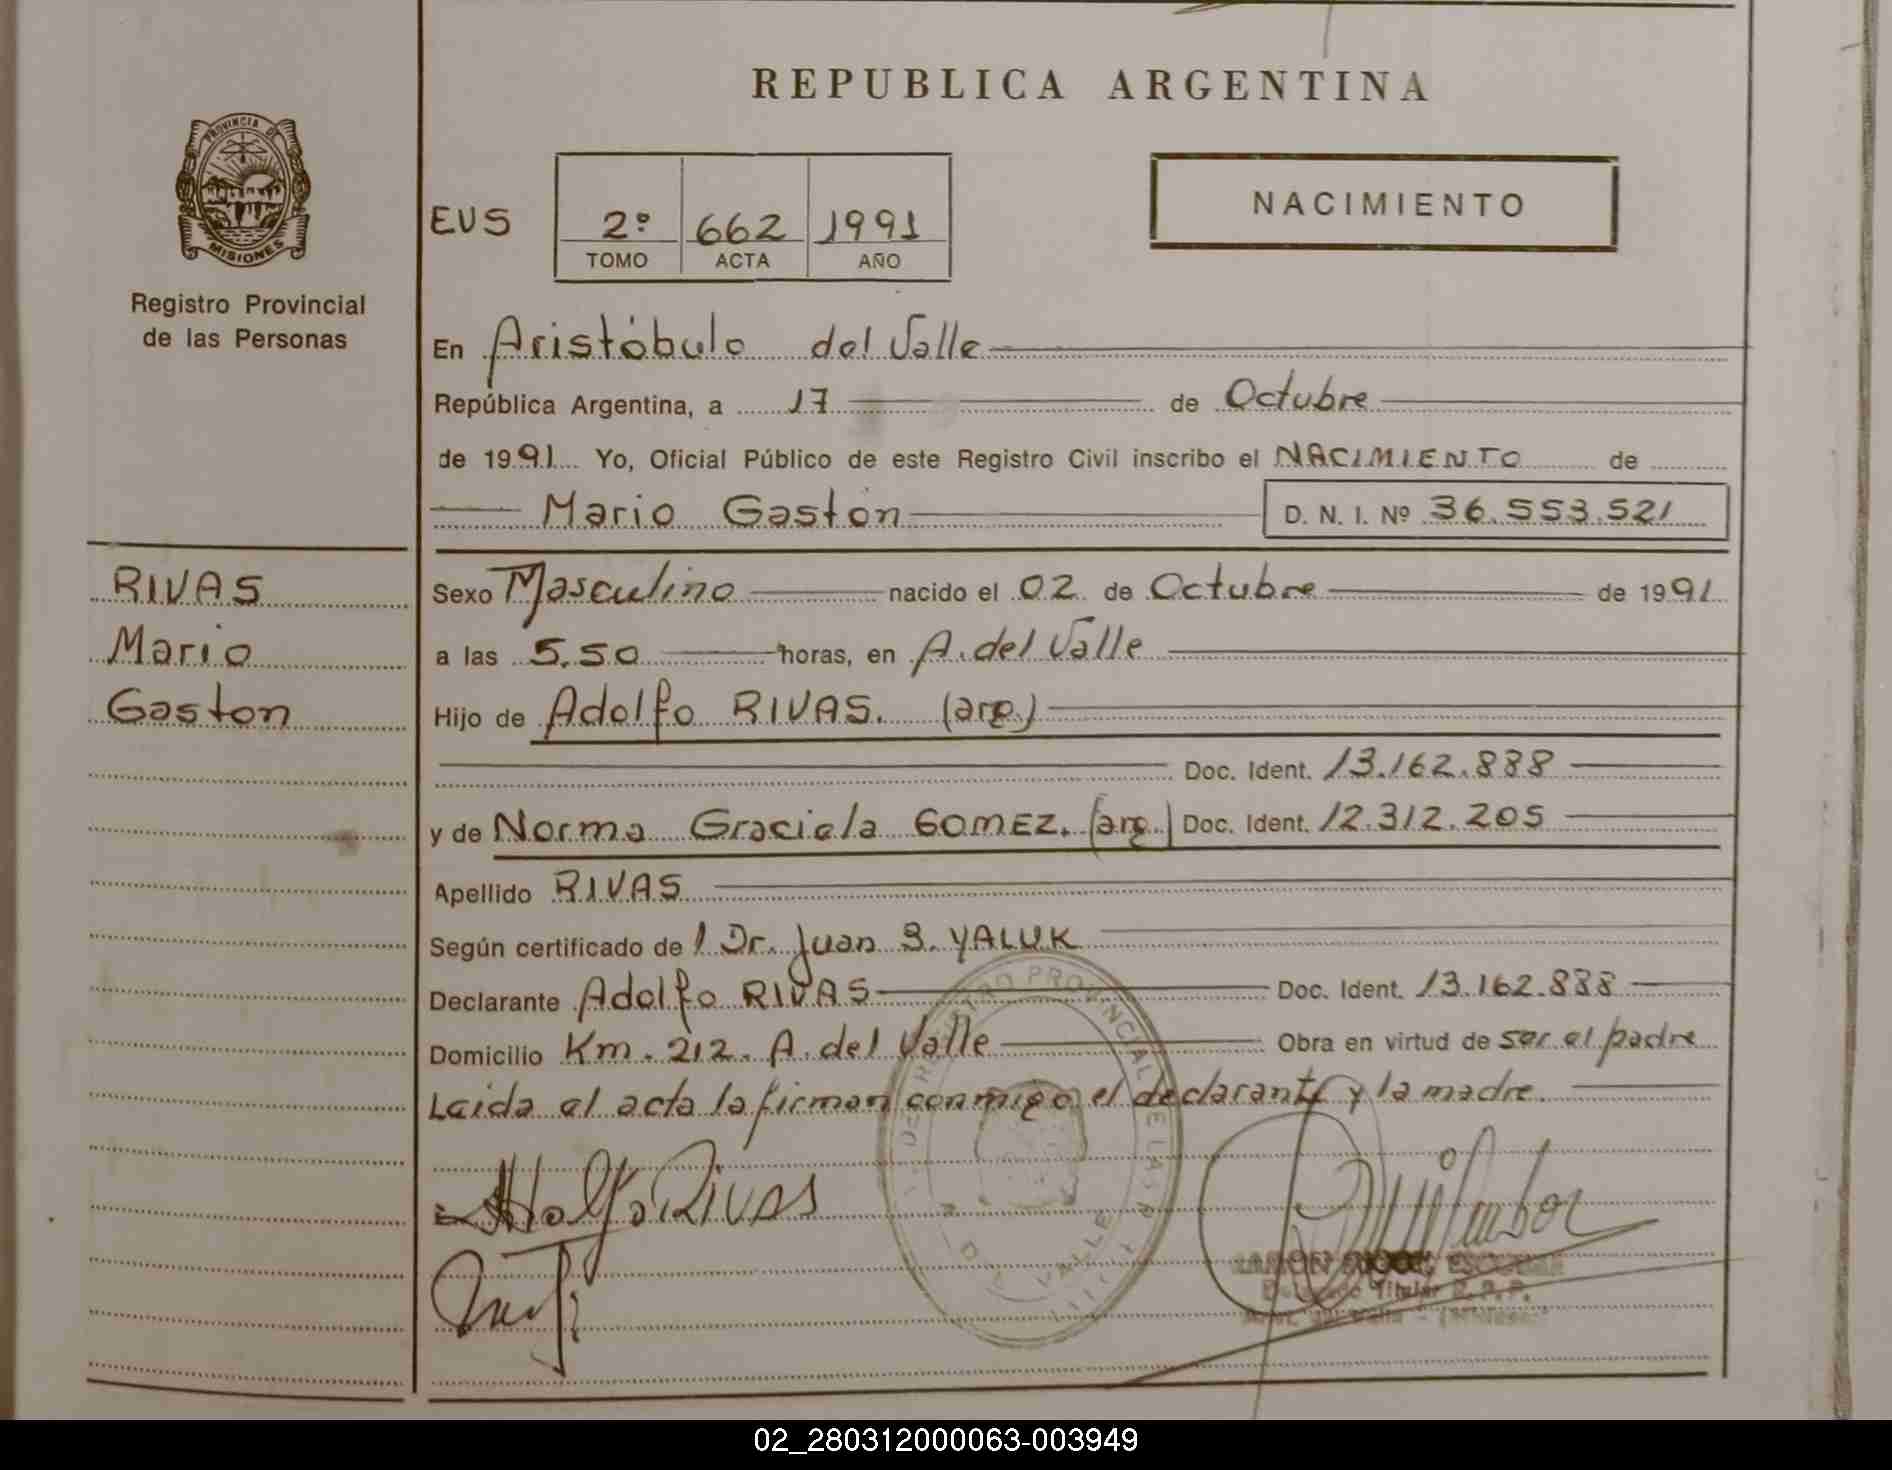 REPUBLICA ARGENTINA
PROVINCIA DE
MISIONES
Registro Provincial
de las Personas
EUS
2º 662 1991
TOMO ACTA AÑO
NACIMIENTO
En Aristóbulo del Valle
República Argentina, a 17 de Octubre
de 1991 Yo, Oficial Público de este Registro Civil inscribo el NACIMIENTO de
Mario Gastón D. N. I. Nº 36.553.521
RIVAS
Mario
Gaston
Sexo Masculino nacido el 02 de Octubre de 1991
a las 5.50 horas, en A. del Valle
Hijo de Adolfo RIVAS. (arg.)
Doc. Ident. 13.162.888
y de Norma Graciela GOMEZ. (arg.) Doc. Ident. 12.312.205
Apellido RIVAS
Según certificado de l Dr. Juan S. YALUK
Declarante Adolfo RIVAS Doc. Ident. 13.162.888
Domicilio Km. 212. A. del Valle Obra en virtud de ser el padre
Leida el acta la firman conmigo el declarante y la madre.
REGISTRO PROVINCIAL DE LAS P
DEL VALLE
Adolfo RIVAS
Delegado Titular R.P.P.
02_280312000063-003949